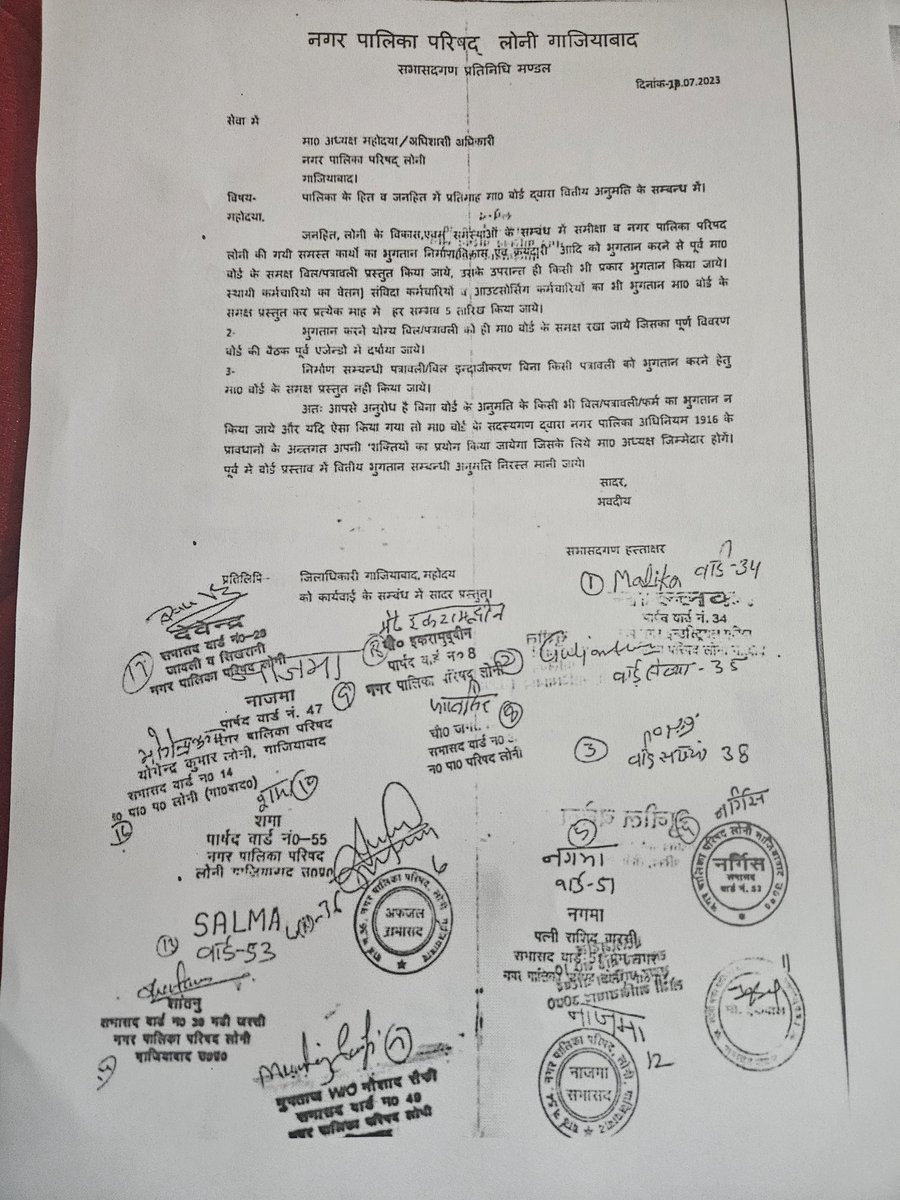 नगर पालिका परिषद् लोनी गाजियाबाद
सभासदगण प्रतिनिधि मण्डल
दिनांक-18.07.2023
सेवा में
मा0 अध्यक्ष महोदया/अधिशासी अधिकारी
नगर पालिका परिषद् लोनी
गाजियाबाद।
विषय- पालिका के हित व जनहित में प्रतिमाह मा0 बोर्ड द्वारा वित्तीय अनुमति के सम्बन्ध में।
महोदया,
जनहित, लोनी के विकास,एवम् समस्याओं के सम्बंध में समीक्षा व नगर पालिका परिषद
लोनी की गयी समस्त कार्यो का भुगतान निर्माण/विकास एंव क्रयदारी आदि को भुगतान करने से पूर्व मा0
बोर्ड के समक्ष बिल/पत्रावली प्रस्तुत किया जाये, उसके उपरान्त ही किसी भी प्रकार भुगतान किया जाये।
स्थायी कर्मचारियों का वेतन) संविदा कर्मचारियों व आउटसोर्सिग कर्मचारियों का भी भुगतान मा0 बोर्ड के
समक्ष प्रस्तुत कर प्रत्येक माह मे हर सम्भव 5 तारिख किया जाये।
2- भुगतान करने योग्य बिल/पत्रावली को ही मा0 बोर्ड के समक्ष रखा जाये जिसका पूर्ण विवरण
बोर्ड की बैठक पूर्व एजेन्डो मे दर्षाया जाये।
3- निर्माण सम्बन्धी पत्रावली/बिल इन्द्राजीकरण बिना किसी पत्रावली को भुगतान करने हेतु
मा0 बोर्ड के समक्ष प्रस्तुत नही किया जाये।
अतः आपसे अनुरोध है बिना बोर्ड के अनुमति के किसी भी बिल/पत्रावली/फर्म का भुगतान न
किया जाये और यदि ऐसा किया गया तो मा0 बोर्ड के सदस्यगण द्वारा नगर पालिका अधिनियम 1916 के
प्रावधानो के अन्तगत अपनी शक्तियों का प्रयोग किया जायेगा जिसके लिये मा0 अध्यक्ष जिम्मेदार होगें।
पूर्व मे बोर्ड प्रस्ताव में वित्तीय भुगतान सम्बन्धी अनुमति निरस्त मानी जाये।
सादर,
भवदीय
सभासदगण हस्ताक्षर
प्रतिलिपि- जिलाधिकारी गाजियाबाद, महोदय
को कार्यवाई के सम्बंध में सादर प्रस्तुत।
① Malika वार्ड-34
वार्ड नं. 34
देवेन्द्र
सभासद वार्ड नं0-29
जावली व सिखरानी
नगर पालिका परिषद लोनी
मौ0 इकरामुद्दीन
पार्षद वार्ड न0 8
नगर पालिका परिषद लोनी
वार्ड संख्या-35
नाजमा
नाजमा
पार्षद वार्ड नं. 47
नगर पालिका परिषद
लोनी, गाजियाबाद
चौ0
सभासद वार्ड न0
न0 पा0 परिषद लोनी
③
वार्ड संख्या 38
योगेन्द्र कुमार
सभासद वार्ड न0 14
न0 पा0 प0 लोनी (गा0बाद0)
शमा
शमा
पार्षद वार्ड नं0-55
नगर पालिका परिषद
लोनी गाजियाबाद उ0प्र0
नर्गिस
नर्गिस
सभासद
वार्ड नं. 53
नगमा
वार्ड-51
नगमा
पत्नी राशिद वारसी
सभासद वार्ड 51
नगर पालिका
SALMA
वार्ड-53
6
अफजल
सभासद
शांतनु
सभासद वार्ड न0 39
नगर पालिका परिषद लोनी
गाजियाबाद उ0प्र0
11
मुमताज W/O नौशाद सैफी
सभासद वार्ड न0 49
नगर पालिका परिषद लोनी
नाजमा
12
नाजमा
सभासद